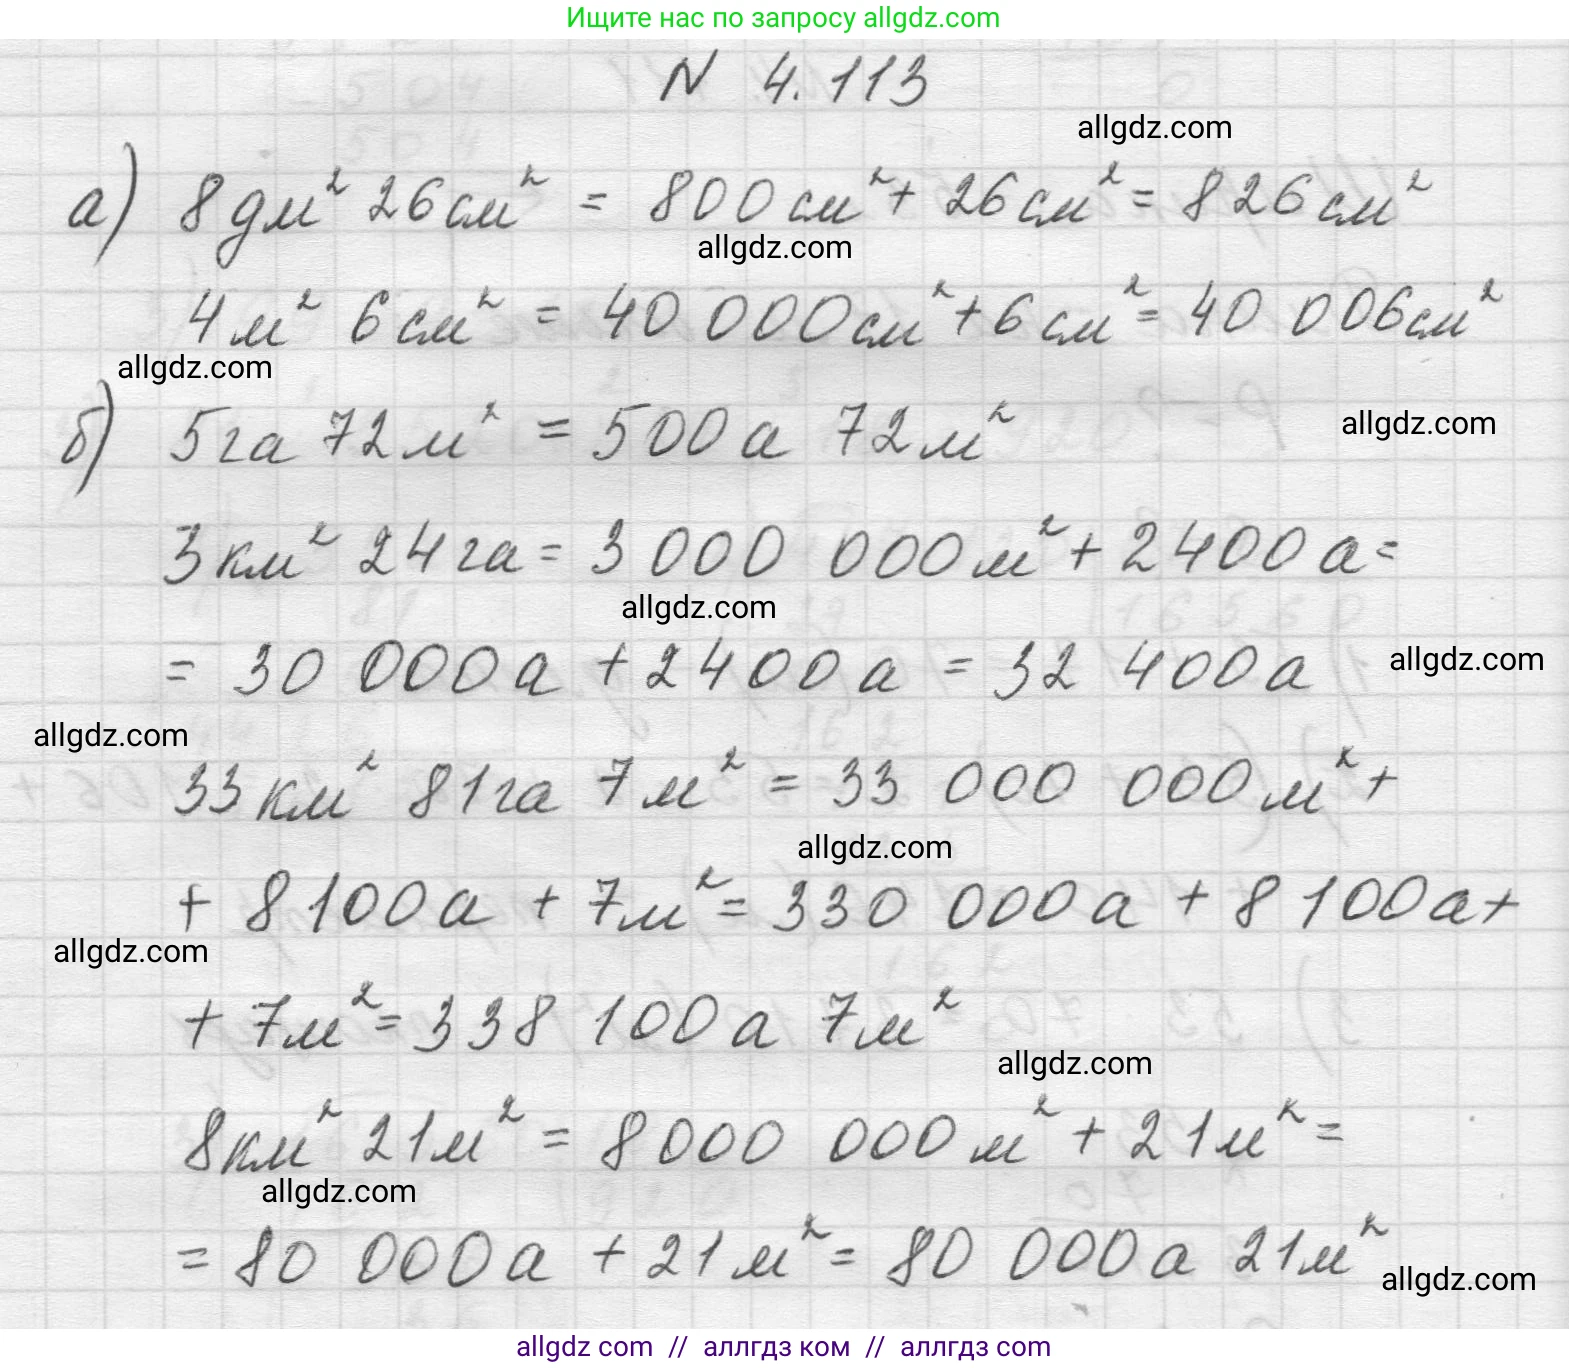 Ищите нас по запросу allgdz.com
N 4.113
allgdz.com
а) 8дм² 26см² = 800см² + 26см² = 826см²
allgdz.com
4м² 6см² = 40 000см² + 6см² = 40 006см²
allgdz.com
б) 5га 72м² = 500а 72м²
allgdz.com
3км² 24га = 3 000 000м² + 2400а =
allgdz.com
= 30 000а + 2400а = 32 400а
allgdz.com
allgdz.com
33км² 81га 7м² = 33 000 000м² +
allgdz.com
+ 8100а + 7м² = 330 000а + 8100а +
allgdz.com
+ 7м² = 338 100а 7м²
allgdz.com
8км² 21м² = 8000 000м² + 21м² =
allgdz.com
= 80 000а + 21м² = 80 000а 21м²
allgdz.com
allgdz com // аллгдз ком // аллгдз com